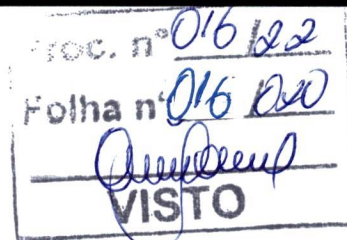 Proc. nº 016/22
Folha nº 016 020
VISTO